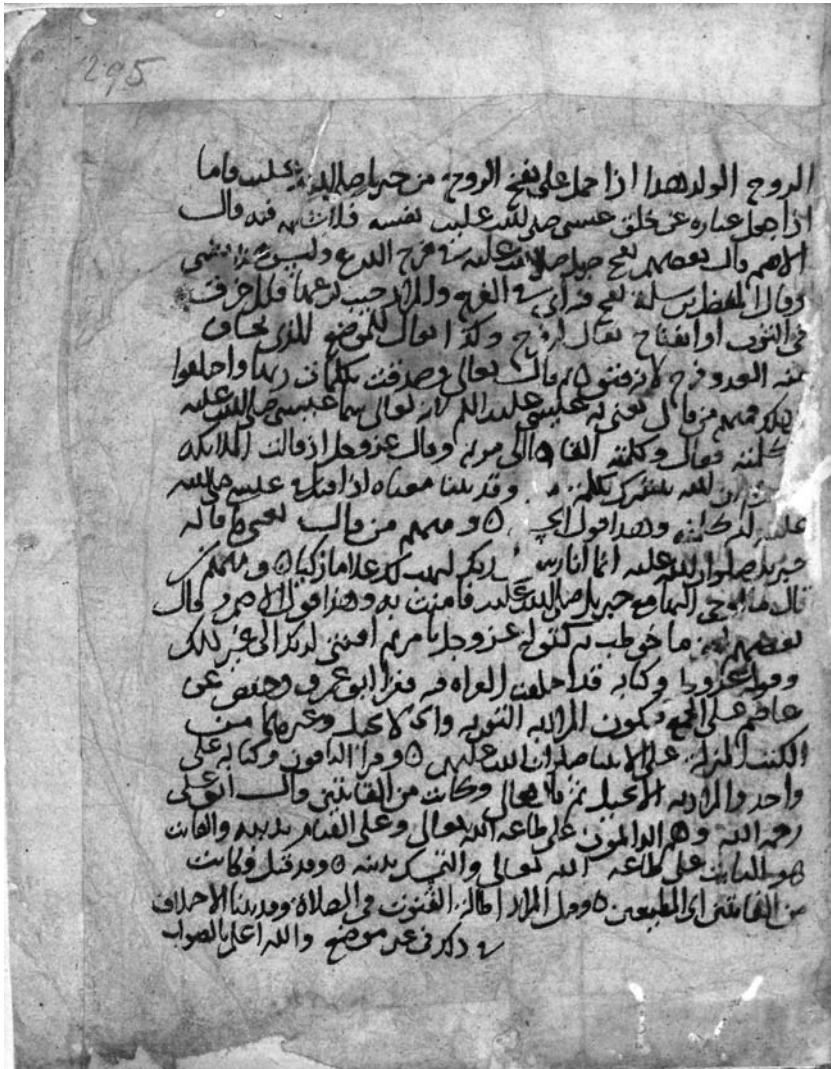 295
الروح الولد هذا اذا حمل على نفخ الروح من جبريل صلى الله عليه فاما
اذا جعل عباره عن خلق عيسى صلى الله عليه نفسه فلا شبهه فيه قال
الاصم وقال بعضهم نفخ جبريل صلى الله عليه في فرج الدرع وليس هذا بشي
وقال المفضل بن سلمة نفخ فيه اي في الفرج والمراد جيب درعها فكل خرق
في الثوب او انفتاح يقال له فرج وكذا يقال للموضع الذي يخاف
منه العدو فرج لانه فتق ٥ ثم قال تعالى وصدقت بكلمات ربها واختلفوا
فمنهم من قال يعني به عيسى عليه السلم لانه تعالى سما عيسى صلى الله عليه
كلمته فقال وكلمته القاها الى مريم وقال عز وجل اذ قالت الملائكة
ان الله يبشرك بكلمة منه وقد بينا معناه اذا قيل في عيسى صلى الله
عليه انه كلمته وهذا قول ابي ٥ ومنهم من قال يعني ما قاله
جبريل صلوات الله عليه انما انا رسول ربك ليهب لك غلاما زكيا ٥ ومنهم من
قال ما اوحي اليها مع جبريل صلى الله عليه فامنت به وهذا قول الاصم وقال
بعضهم ما خوطبت به كقوله عز وجل يا مريم اقنتي لربك الى غير ذلك
وقوله عز وجل وكتابه قد اختلفت القراه فيه فقرا ابو عمرو وحفص عن
عاصم على الجمع فيكون المراد به التوريه والانجيل وغيرهما من
الكتب المنزلة على الانبيا صلوات الله عليهم ٥ وقرا الباقون وكتابه على
واحد والمراد به الانجيل ثم قال تعالى وكانت من القانتين قال ابو علي
رحمه الله وهم الدائمون على طاعه الله تعالى وعلى القيام بدينه والقانت
هو الثابت على طاعه الله تعالى والتمسك بدينه ٥ وقد قيل وكانت
من القانتين اي المطيعين ٥ وقيل المراد اطالة القنوت في الصلاة وقد بينا الاختلاف
في ذكره في غير موضع والله اعلم بالصواب